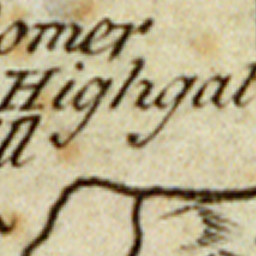 omer
Highgat
ll